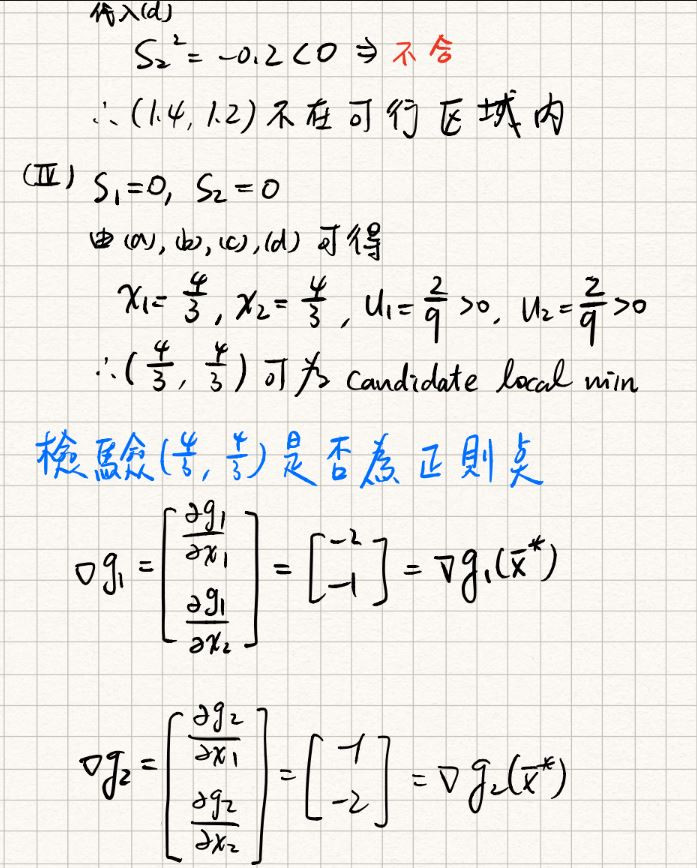 代入(d)
S₂² = -0.2 < 0 ⇒ 不合
∴ (1.4, 1.2) 不在可行区域内
(Ⅳ) S₁=0, S₂=0
由(a), (b), (c), (d) 可得
x₁= 4/3, x₂= 4/3, u₁= 2/9 >0, u₂= 2/9 >0
∴ (4/3, 4/3) 可为 candidate local min
檢驗(4/3, 4/3)是否為正則點
∇g₁ = [∂g₁/∂x₁; ∂g₁/∂x₂] = [-2; -1] = ∇g₁(x̄*)
∇g₂ = [∂g₂/∂x₁; ∂g₂/∂x₂] = [-1; -2] = ∇g₂(x̄*)